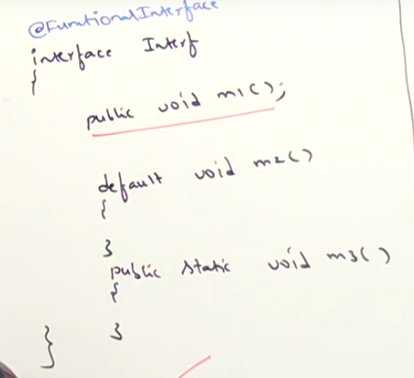 @FunctionalInterface
interface Interf
{
public void m1();
default void m2()
{
}
public static void m3()
{
}
}